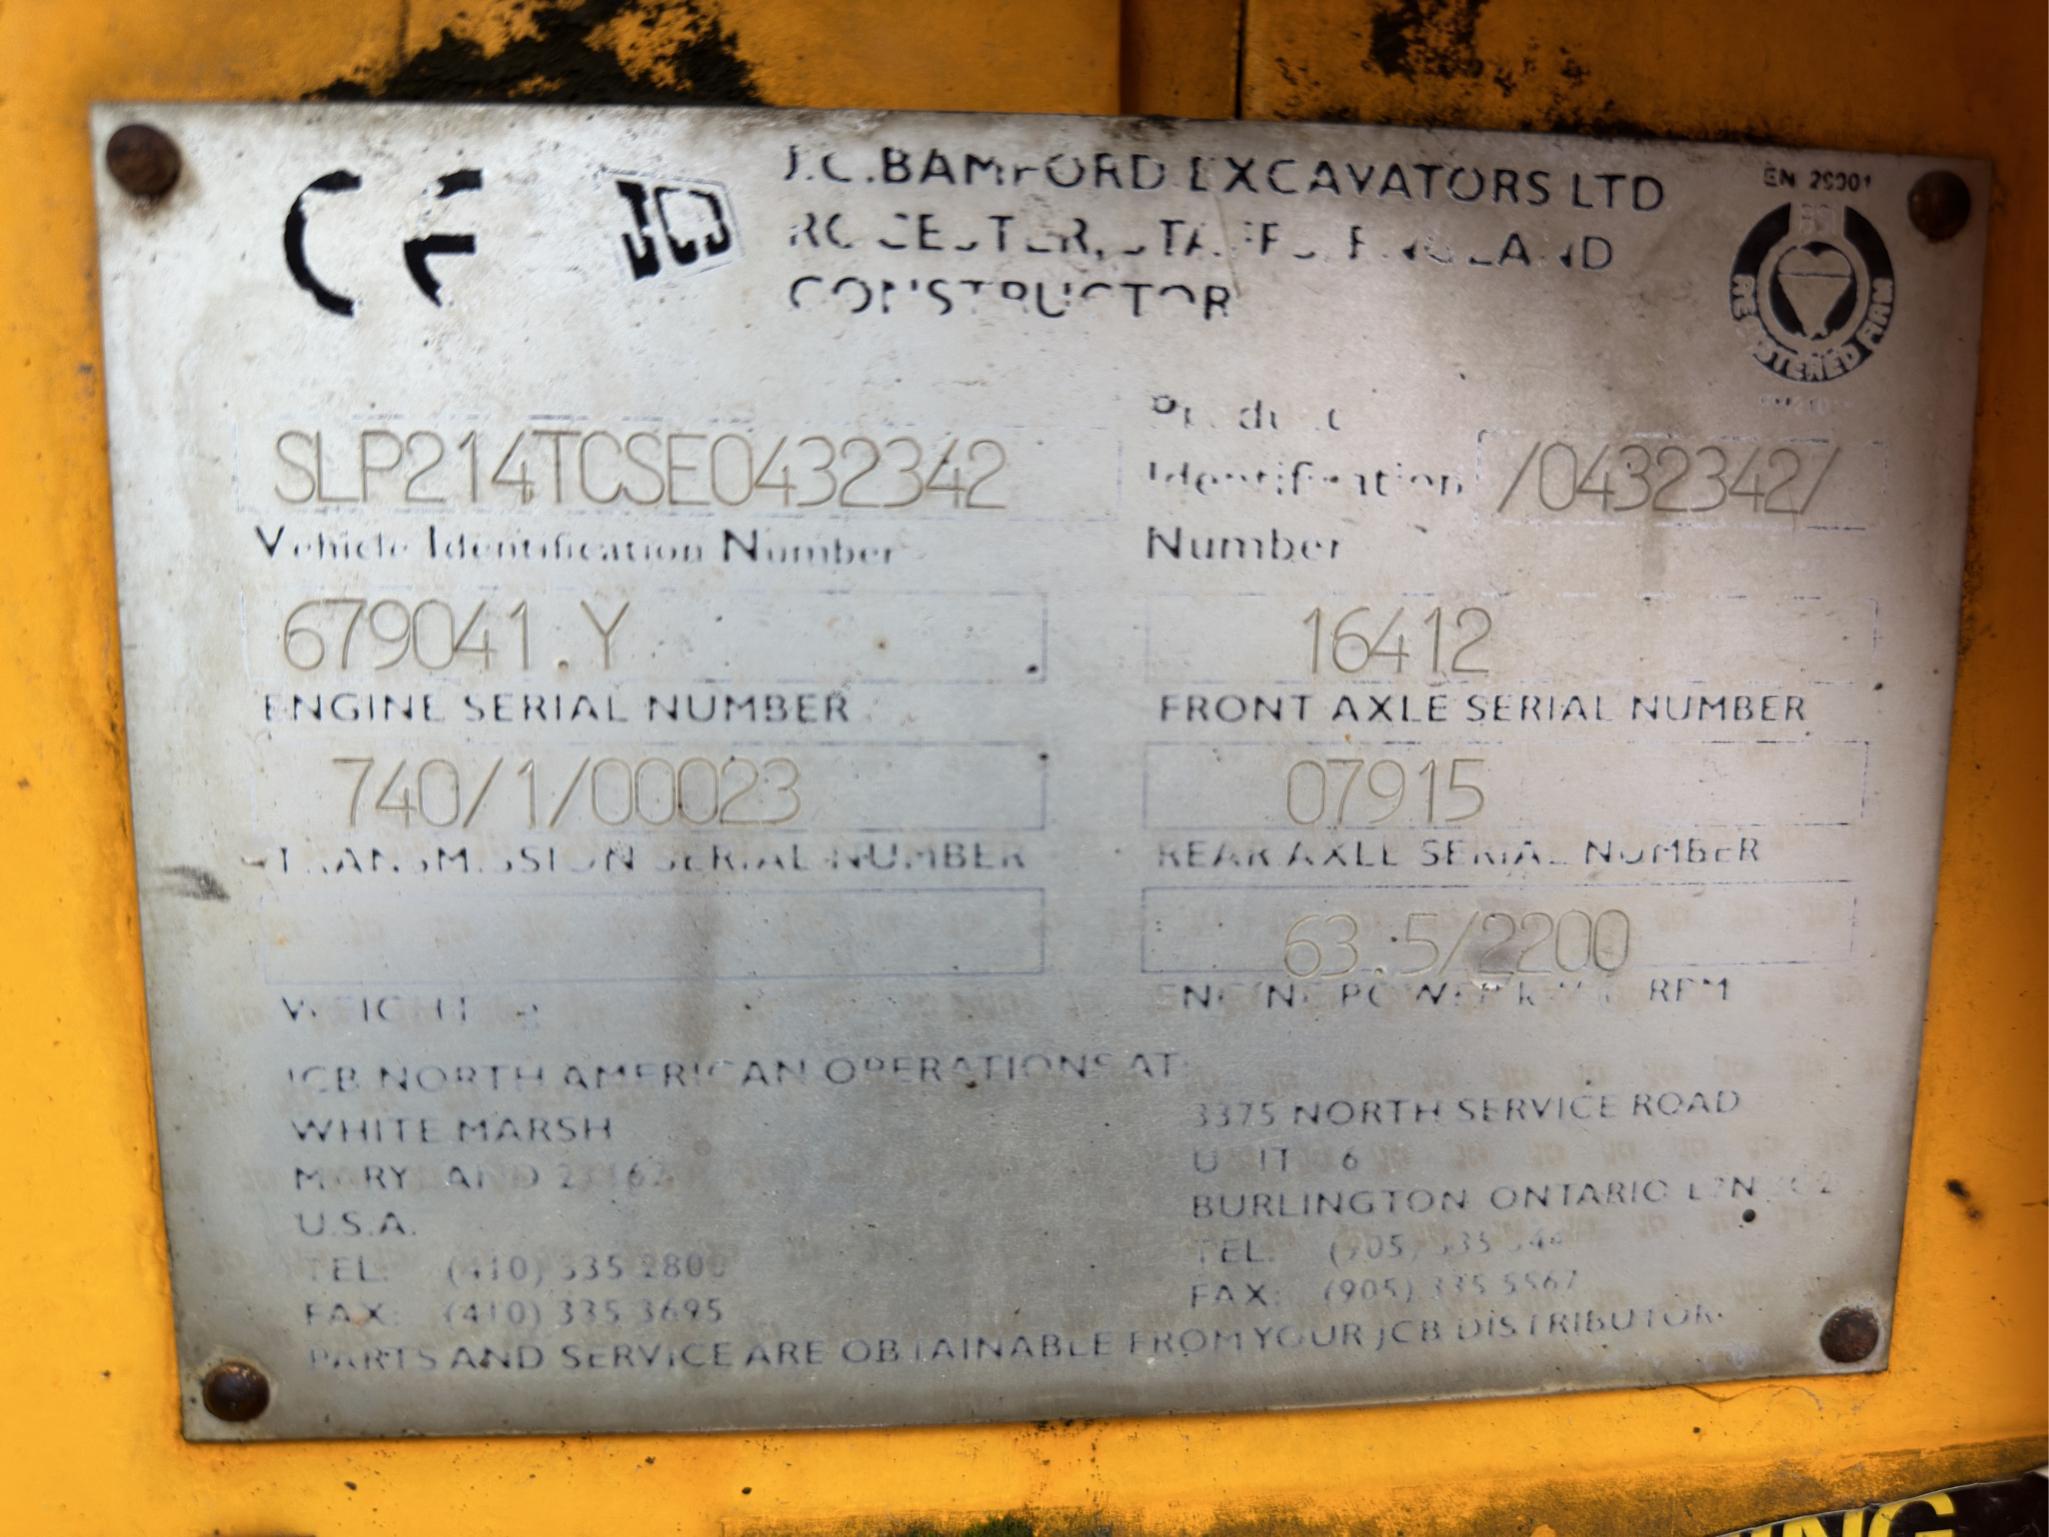 CE JCB J.C.BAMFORD EXCAVATORS LTD
ROCESTER, STAFFS, ENGLAND
CONSTRUCTOR
EN 29001
BSI
REGISTERED FIRM
SLP214TCSE0432342
Vehicle Identification Number
Product
Identification /0432342/
Number
679041.Y
ENGINE SERIAL NUMBER
16412
FRONT AXLE SERIAL NUMBER
740/1/00023
TRANSMISSION SERIAL NUMBER
07915
REAR AXLE SERIAL NUMBER
WEIGHT
63.5/2200
ENGINE POWER RPM
JCB NORTH AMERICAN OPERATIONS AT
WHITE MARSH
MARYLAND 21162
U.S.A.
TEL: (410) 335 2800
FAX: (410) 335 3695
3375 NORTH SERVICE ROAD
UNIT 6
BURLINGTON ONTARIO
TEL: (905) 335
FAX: (905) 335 5567
PARTS AND SERVICE ARE OBTAINABLE FROM YOUR JCB DISTRIBUTOR.